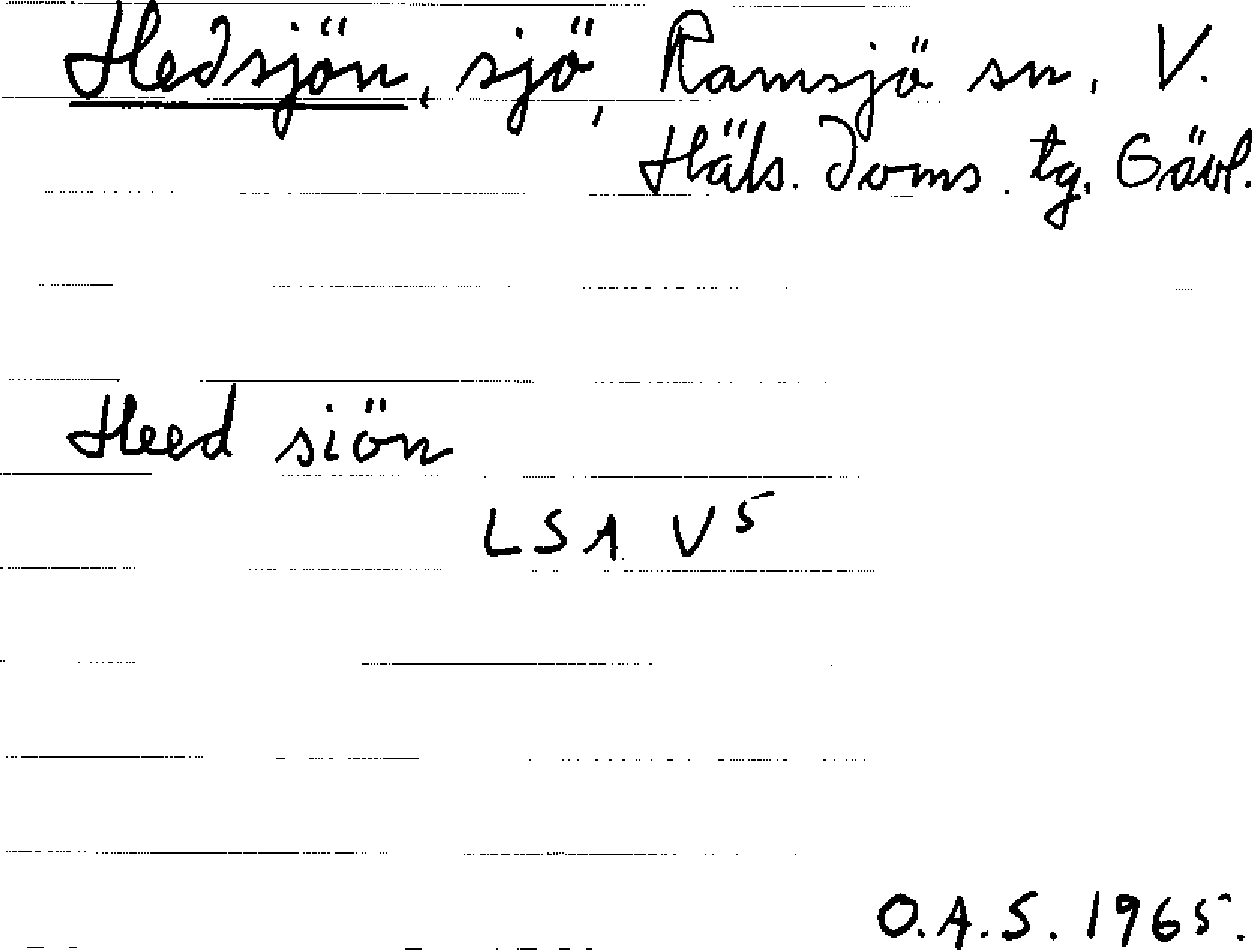 Hedsjön, sjö, Ramsjö sn. V.
Häls. doms. tg. Gävl.
Heed siön
LSA V5
O.A.S. 1965.